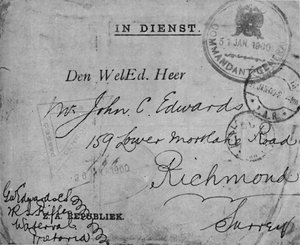 IN DIENST.
COMMANDANT-GENERAAL
31 JAN. 1900
Den WelEd. Heer
Mr John C. Edwards
159 Lower Mortlake Road
Richmond
Surrey
Z.A.R.
JAN 1900
Geo Edwards
Z.A. REPUBLIEK.
Waterval
Pretoria